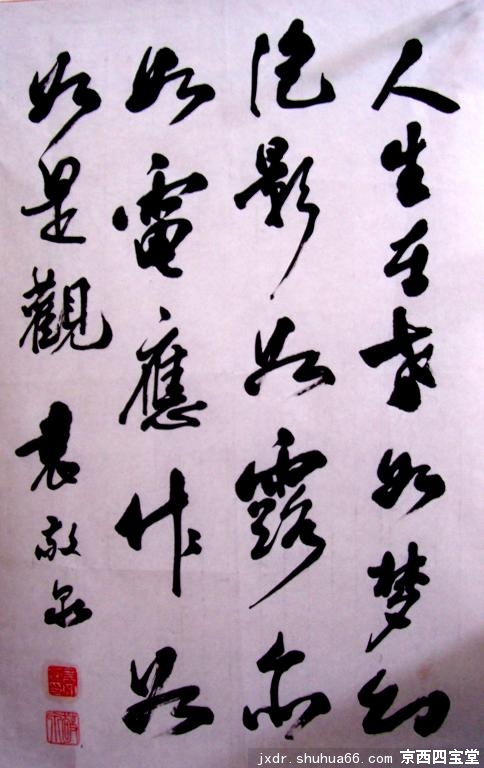 人生在世如梦幻
泡影如露亦
如電應作如
如是觀 袁敬泉
jxdr.shuhua66.com 京西四宝堂